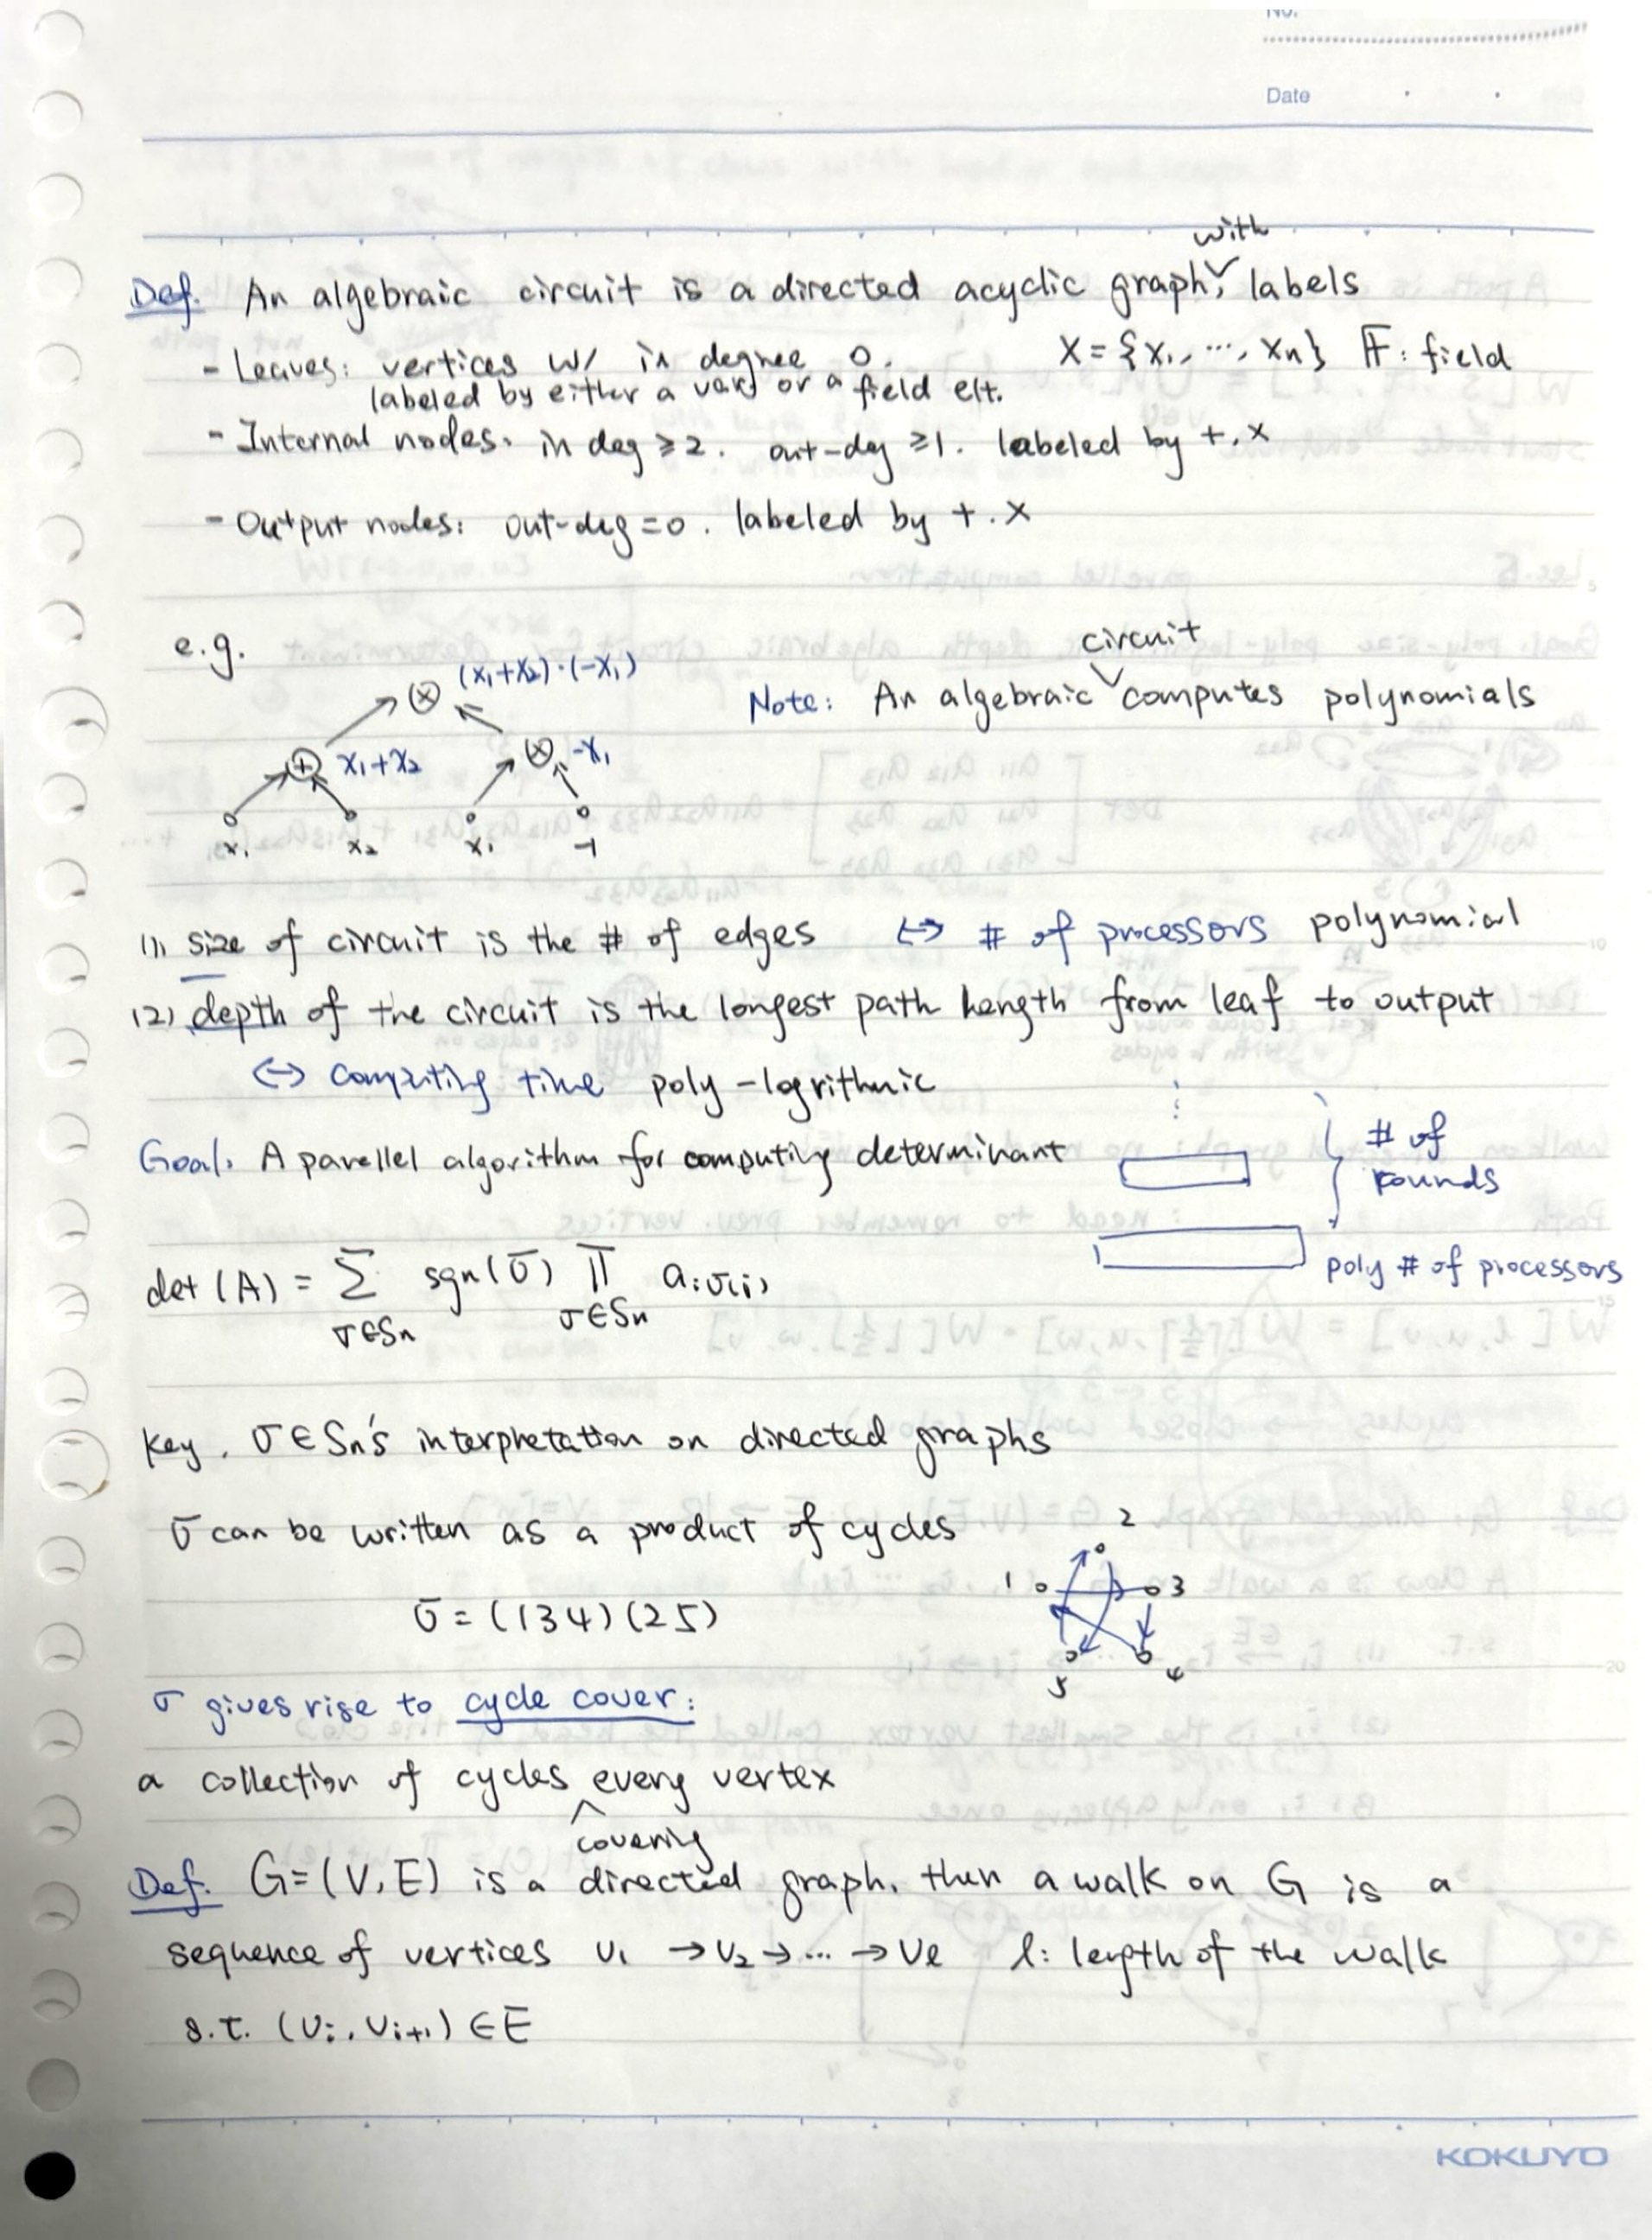 No.
Date
Def. An algebraic circuit is a directed acyclic graph, with labels
- Leaves: vertices w/ in degree 0. X = {x₁, ..., xₙ} 𝔽: field
labeled by either a var or a field elt.
- Internal nodes. in deg ≥ 2. out-deg ≥ 1. labeled by +, ×
- Output nodes: out-deg = 0. labeled by +. ×
e.g.
(x₁+x₂)·(-x₁)
Note: An algebraic circuit computes polynomials
x₁+x₂ -x₁
x₁ x₂ x₁ -1
(1) size of circuit is the # of edges ↔ # of processors polynomial
(2) depth of the circuit is the longest path length from leaf to output
↔ computing time poly-logrithmic
Goal. A parellel algorithm for computing determinant
# of rounds
poly # of processors
det(A) = Σ_{σ∈Sₙ} sgn(σ) Π_{σ∈Sₙ} a_{iσ(i)}
Key. σ∈Sₙ's interpretation on directed graphs
σ can be written as a product of cycles
σ = (134)(25)
1 2 3 4 5
σ gives rise to cycle cover:
a collection of cycles covering every vertex
Def. G=(V,E) is a directed graph, then a walk on G is a
sequence of vertices v₁ → v₂ → ... → vℓ ℓ: length of the walk
s.t. (vᵢ, vᵢ₊₁) ∈ E
KOKUYO